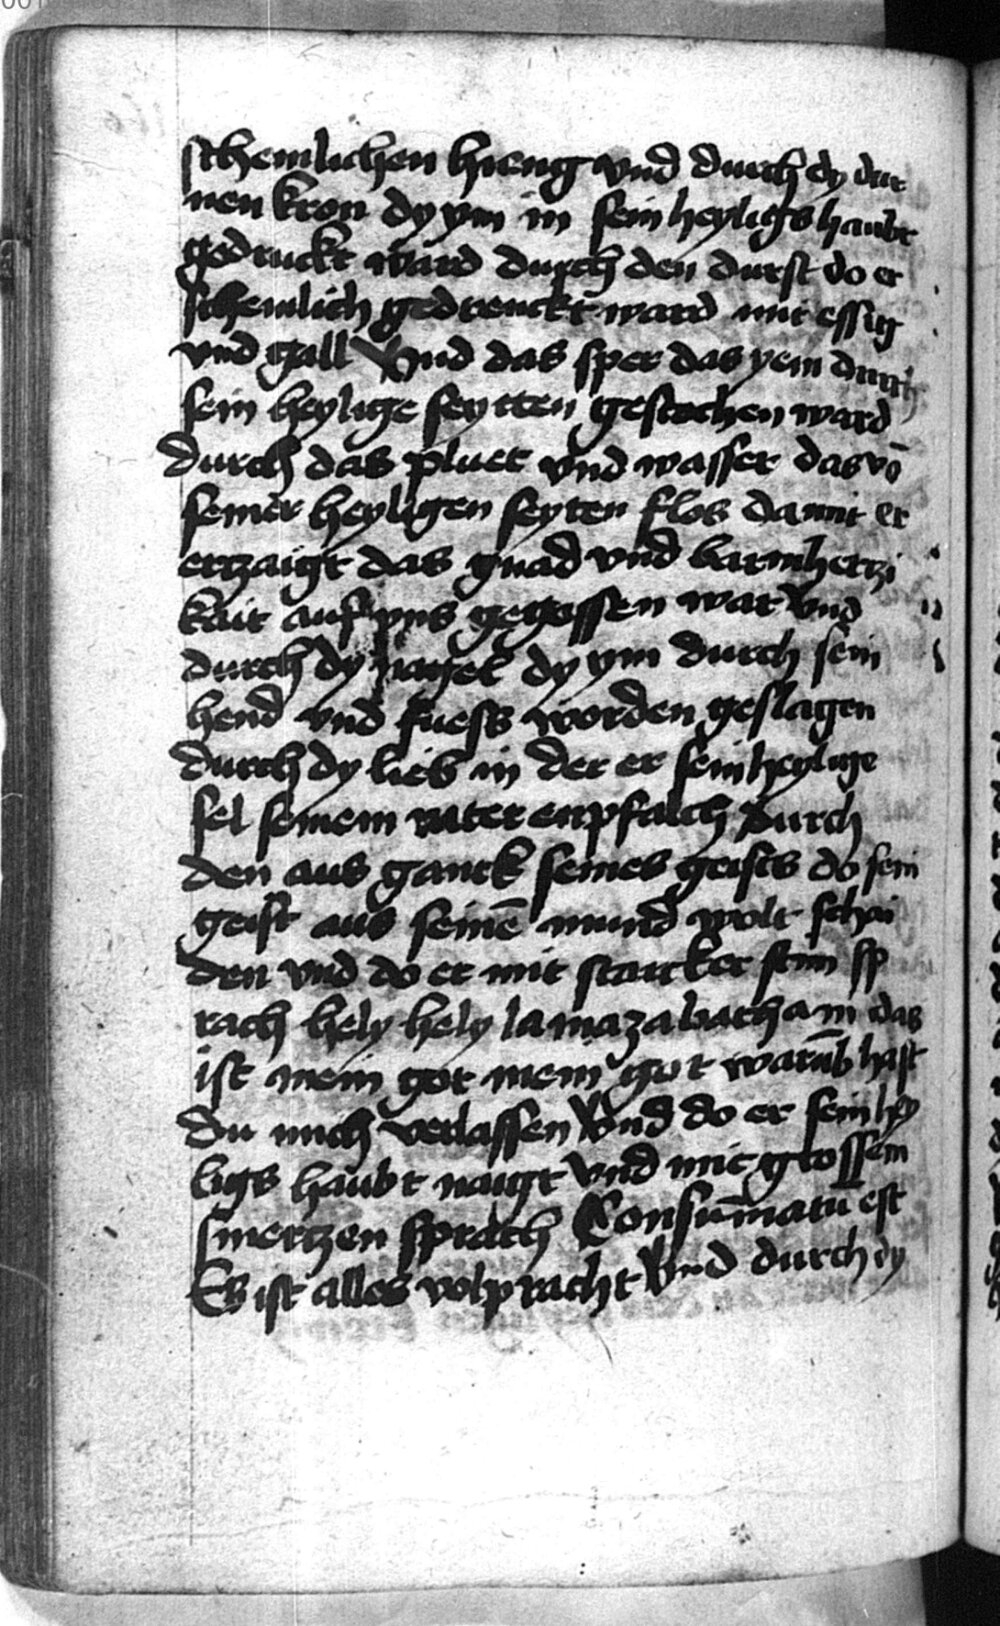 schemlichen hieng vnd durch dy dür
nen kron dy ym in sein heyligs haubt
gedruckt ward durch den durst do er
schemlich gedrenckt ward mit essig
vnd gall Vnd das sper das yem durch
sein heylige seytten gestochen ward
durch das pluet vnd wasser das vō
seiner heyligen seyten flos damit er
erzaigt das gnad vnd barmhertzi
kait auf vns gegossen war Vnd
durch dy nagel dy ym durch sein
hend vnd fuess worden geslagen
durch dy lieb in der er sein heylige
sel seinem vater enpfalch durch
den aus ganck seines geists do sein
geist aus seinē mund wolt schai
den vnd do er mit starcker stim sp
rach hely hely lamazabathani das
ist mein got mein got warūb hast
du mich verlassen Vnd do er sein hey
ligs haubt naigt Vnd mit grossem
smertzen sprach Consūmatu est
Es ist alles volpracht Vnd durch dy